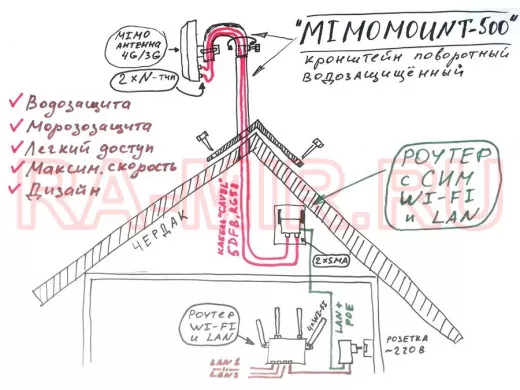 MIMO
АНТЕННА
4G/3G
2×N-ТИП
"MIMOMOUNT-500"
кронштейн поворотный
водозащищённый
✓ Водозащита
✓ Морозозащита
✓ Легкий доступ
✓ Максим. скорость
✓ Дизайн
RA-MIR.RU
РОУТЕР
С СИМ
WI-FI
и LAN
ЧЕРДАК
КАБЕЛЬ "CAVEL"
5DFB, RG58
2×SMA
LAN+
POE
РОУТЕР
WI-FI
и LAN
4×WI-FI
LAN1
LAN2
РОЗЕТКА
~220В